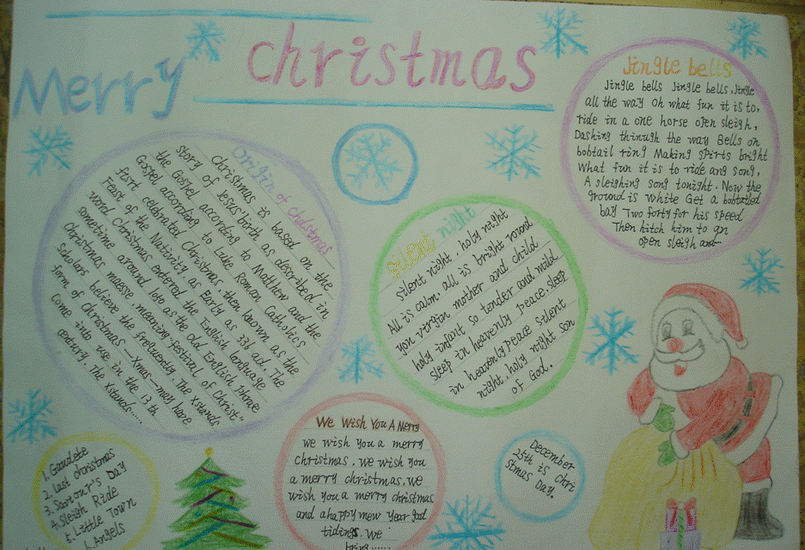 Merry christmas
Origin of christmas
Christmas is based on the
story of Jesus' birth as described in
the Gospel according to Matthew and the
Gospel according to Luke Roman Catholics
first celebrated Christmas, then known as the
Feast of the Nativity as Early as 336 ad. The
word Christmas entered the English language
sometime around 1060 as the old English phrase
Christmas maesse, meaning "festival of Christ"
Scholars believe the frequently. The xswords
form of Christmas —Xmas— may have
come into use in the 13 th
century. The xswords......
silent night
silent night, holy night
All is calm. all is bright round
yon virgin mother and child
holy infant so tender and mild
sleep in heavenly peace. sleep
in heavenly peace silent
night, holy night son
of God.
Jingle bells
Jingle bells Jingle bells, Jingle
all the way Oh what fun it is to,
ride in a one horse open sleigh,
Dashing thinugh the way Bells on
bobtail ring Making spirts bright
What fun it is to ride ang song,
A sleighing song tonight. Now the
ground is white Get a bobtailed
bay Two forty for his speed
Then hitch him to an
open sleigh and
1. Gaudete
2. Last christmas
3. Saviour's Day
4. Sleigh Ride
5. Little Town
6. Angels
We Wish You A Merry
we wish you a merry
christmas. we wish you
a merry christmas. we
wish you a merry christmas
and a happy mew year good
tidings we
bring......
December
25th is Chri
stmas Day.